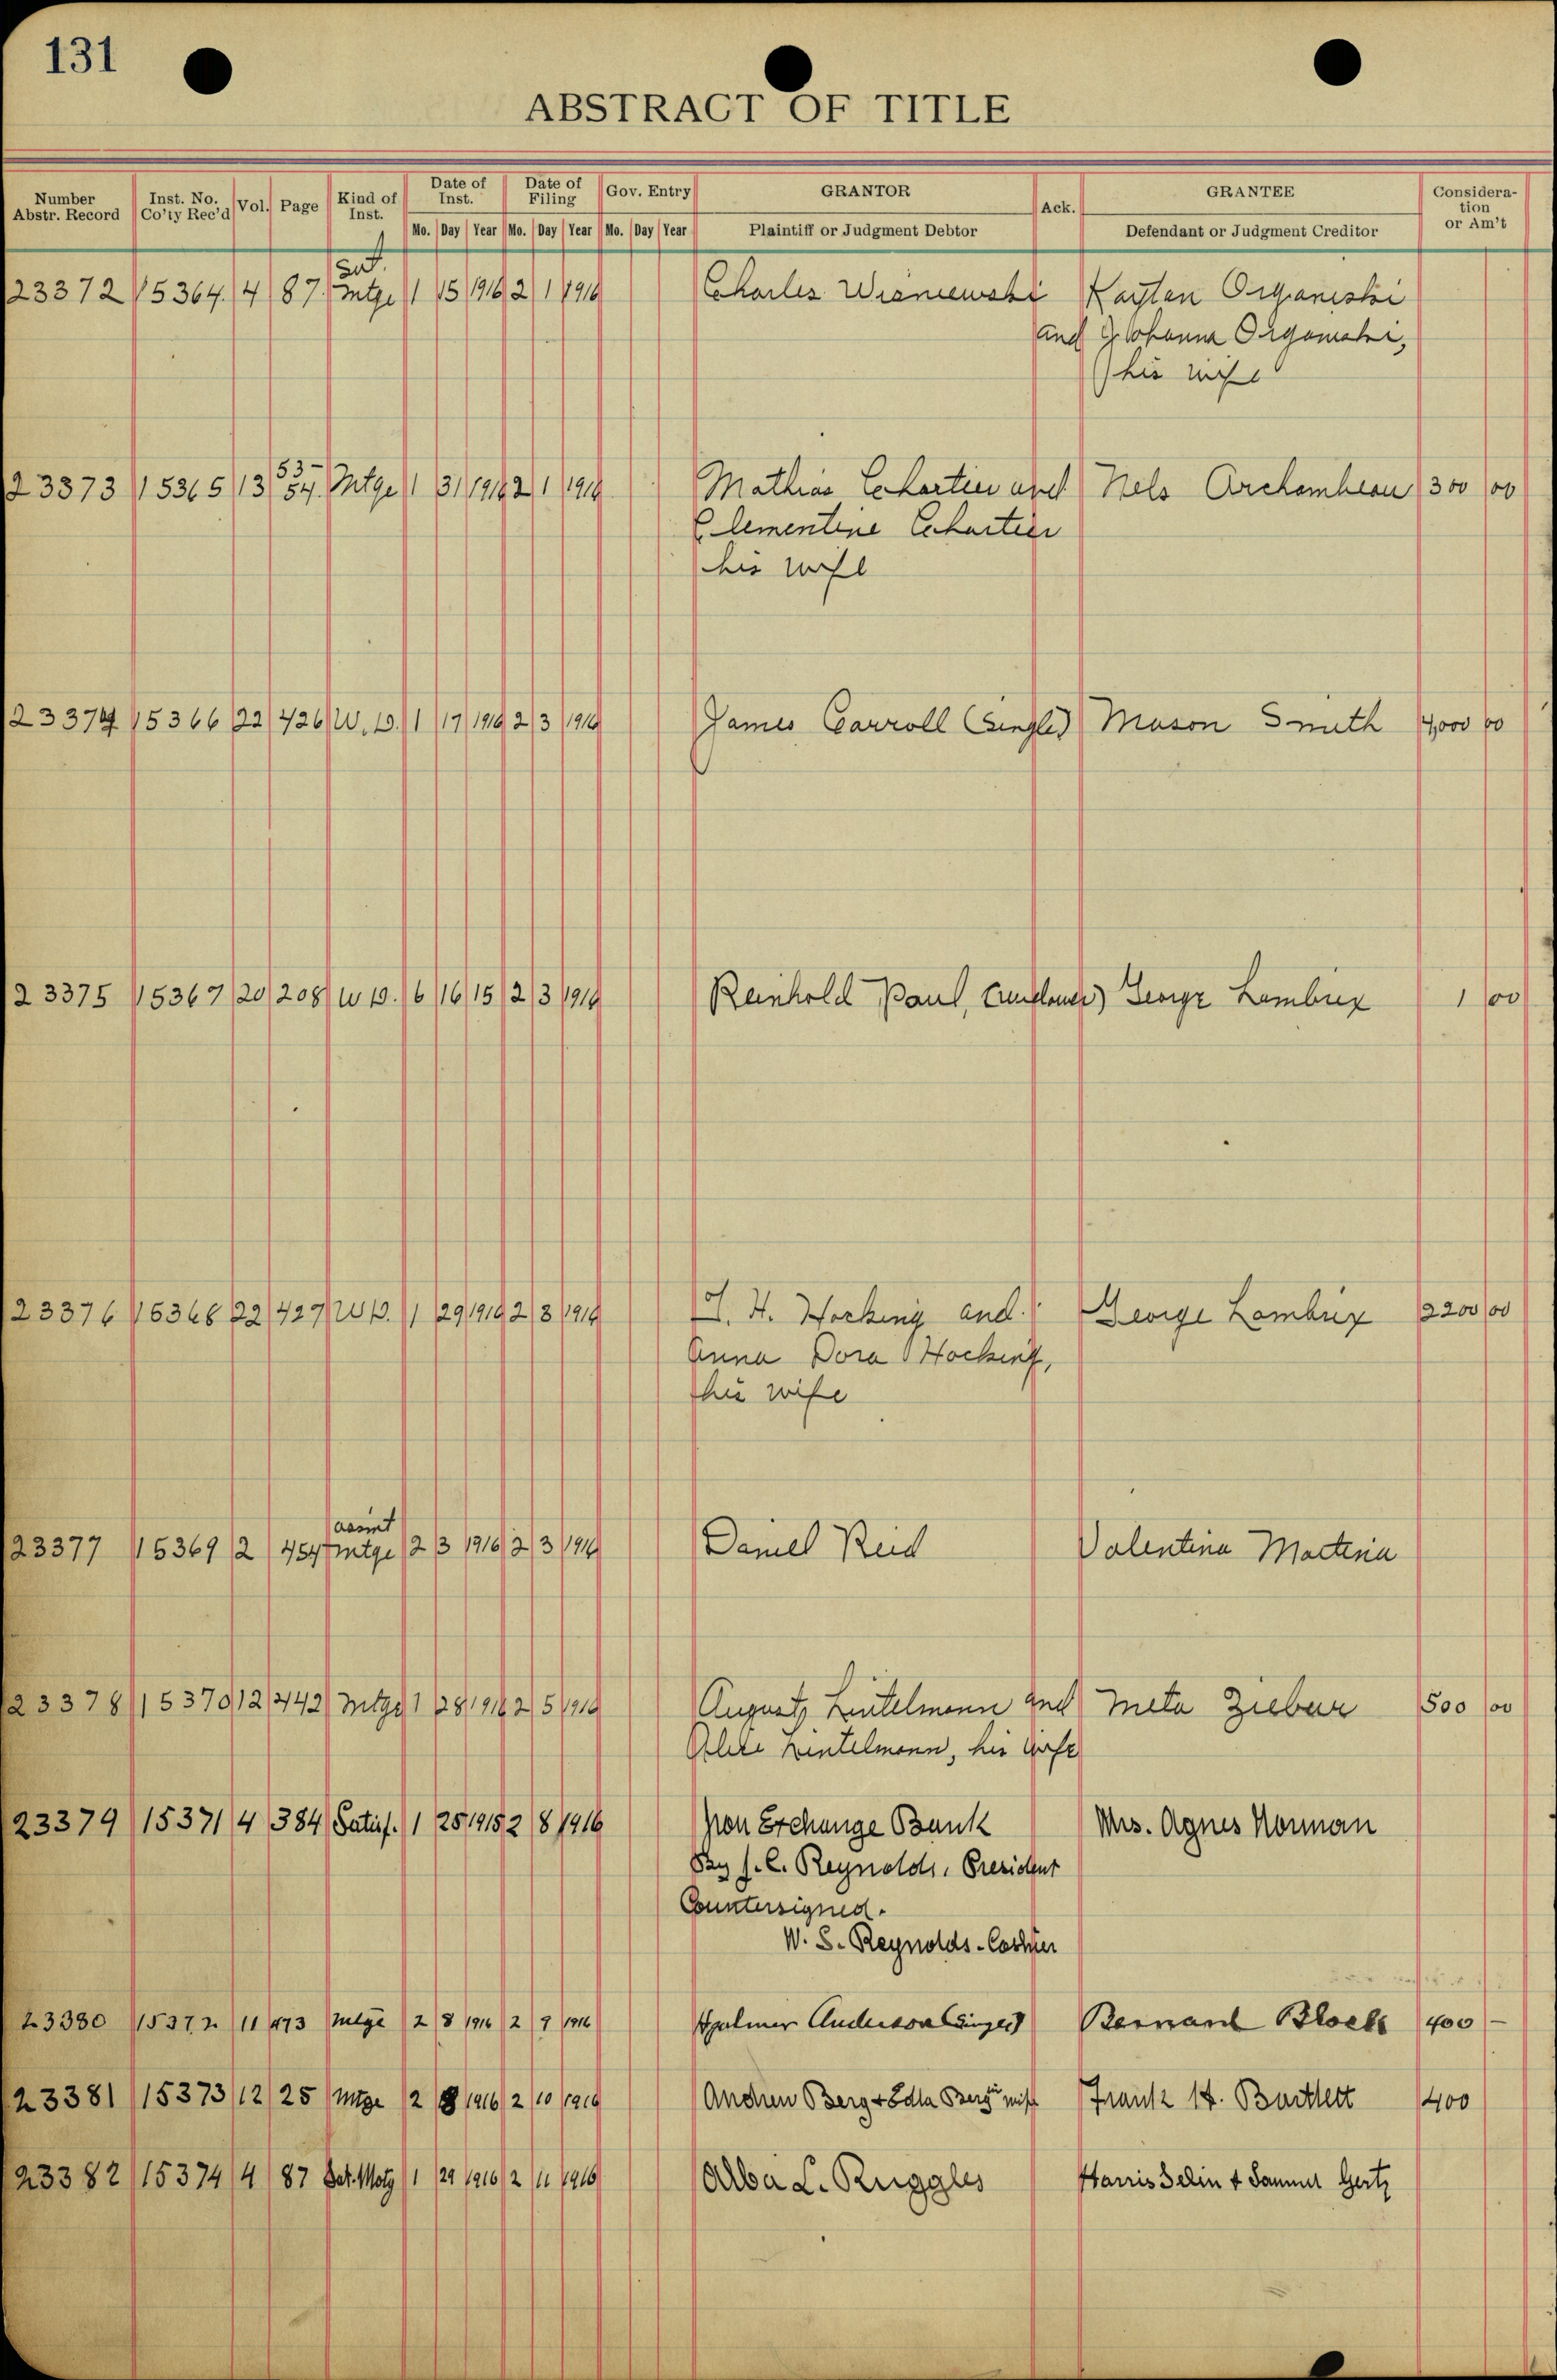 131
ABSTRACT OF TITLE
Number Abstr. Record Inst. No. Co'ty Rec'd Vol. Page Kind of Inst. Date of Inst. Date of Filing Gov. Entry GRANTOR Ack. GRANTEE Consideration or Am't
Mo. Day Year Mo. Day Year Mo. Day Year Plaintiff or Judgment Debtor Defendant or Judgment Creditor
Sat.
23372 15364 4 87 mtge 1 15 1916 2 1 1916 Charles Wisniewski Organiski
and his wife
53-
23373 15365 13 54 Mtge 1 31 1916 2 1 1916 Mathias Echartier and Nels Archambeau 300 00
Clementine Echartier
his wife
23374 15366 22 426 W.D. 1 17 1916 2 3 1916 James Carroll (single) Mason Smith 4,000 00
23375 15367 20 208 W D. 6 16 15 2 3 1916 Reinhold Paul, George Lambrix 1 00
23376 15368 22 427 W D. 1 29 1916 2 3 1916 J. H. Hocking and George Lambrix 2200 00
Anna Dora Hocking,
his wife
assmt
23377 15369 2 454 mtge 2 3 1916 2 3 1916 Daniel Reid Valentina
23378 15370 12 442 Mtge 1 28 1916 2 5 1916 August Lintelmann and Meta 500 00
Lintelmann, his wife
23379 15371 4 384 Satisf. 1 25 1915 2 8 1916 Iron Exchange Bank Mrs. Agnes Norman
By J. C. Reynolds, President
Countersigned.
W. S. Reynolds - Cashier
23380 15372 11 473 Mtge 2 8 1916 2 9 1916 Hjalmer Anderson (single) Bernard Block 400 -
23381 15373 12 25 Mtge 2 8 1916 2 10 1916 Andrew Berg + Edla Berg wife Frank H. Bartlett 400
23382 15374 4 87 Sat. Motg 1 29 1916 2 11 1916 Alba L. Ruggles Harris Selin + Samuel Gertz